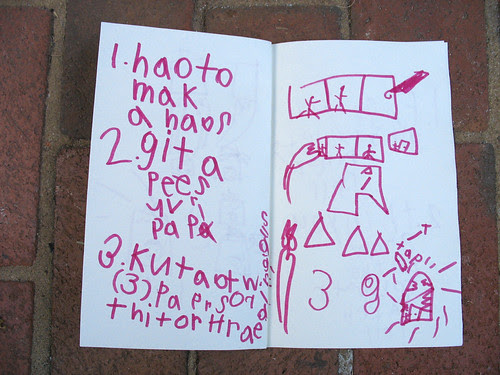 1. haoto
mak
a haos
2. git a
pees
yvri
papr
3. kutaotw
(3). Paersor
thitorHrae
3 9